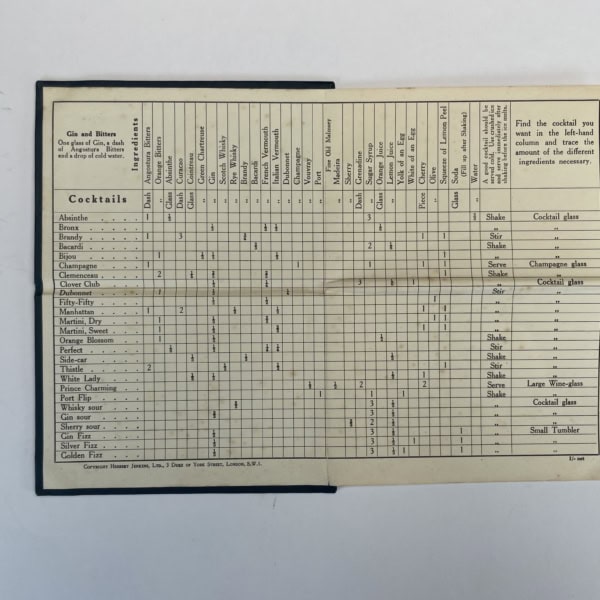 Gin and Bitters
One glass of Gin, a dash
of Angostura Bitters
and a drop of cold water.
Ingredients
Angostura Bitters
Orange Bitters
Absinthe
Curacao
Cointreau
Green Chartreuse
Gin
Scotch Whisky
Rye Whisky
Brandy
Bacardi
French Vermouth
Italian Vermouth
Dubonnet
Champagne
Vouvray
Port
Fine Old Malmsey
Madeira
Sherry
Grenadine
Sugar Syrup
Orange Juice
Lemon Juice
Yolk of an Egg
White of an Egg
Cherry
Olive
Squeeze of Lemon Peel
Soda
(Fill up after Shaking)
Water
A good cocktail should be
served cold. Use crushed ice
and serve immediately after
shaking before the ice melts.
Find the cocktail you
want in the left-hand
column and trace the
amount of the different
ingredients necessary.
Cocktails
Dash „ Glass Dash Glass „ „ „ „ „ „ „ „ „ „ „ „ „ „ Dash „ Glass „ „ „ Piece „ „ Glass „
Absinthe 1 ½ 3 Shake Cocktail glass
Bronx „ „
Brandy 1 3 1 1 Stir „
Bacardi 2 Shake „
Bijou 1 1 „ „
Champagne 1 1 1 1 1 Serve Champagne glass
Clemenceau 2 Shake „
Clover Club 3 1 „ Cocktail glass
Dubonnet 1 Stir „
Fifty-Fifty 1 „ „
Manhattan 1 2 1 1 „ „
Martini, Dry 1 1 1 „ „
Martini, Sweet 1 1 „ „
Orange Blossom 1 Shake „
Perfect Stir „
Side-car Shake „
Thistle 2 1 Stir „
White Lady 1 Shake „
Prince Charming 2 2 Serve Large Wine-glass
Port Flip 1 1 1 Shake „
Whisky sour 3 „ Cocktail glass
Gin sour 3 „ „
Sherry sour 2 „ „
Gin Fizz 3 1 „ Small Tumbler
Silver Fizz 3 1 1 „ „
Golden Fizz 3 1 1 „ „
Copyright Herbert Jenkins, Ltd., 3 Duke of York Street, London, S.W.1.